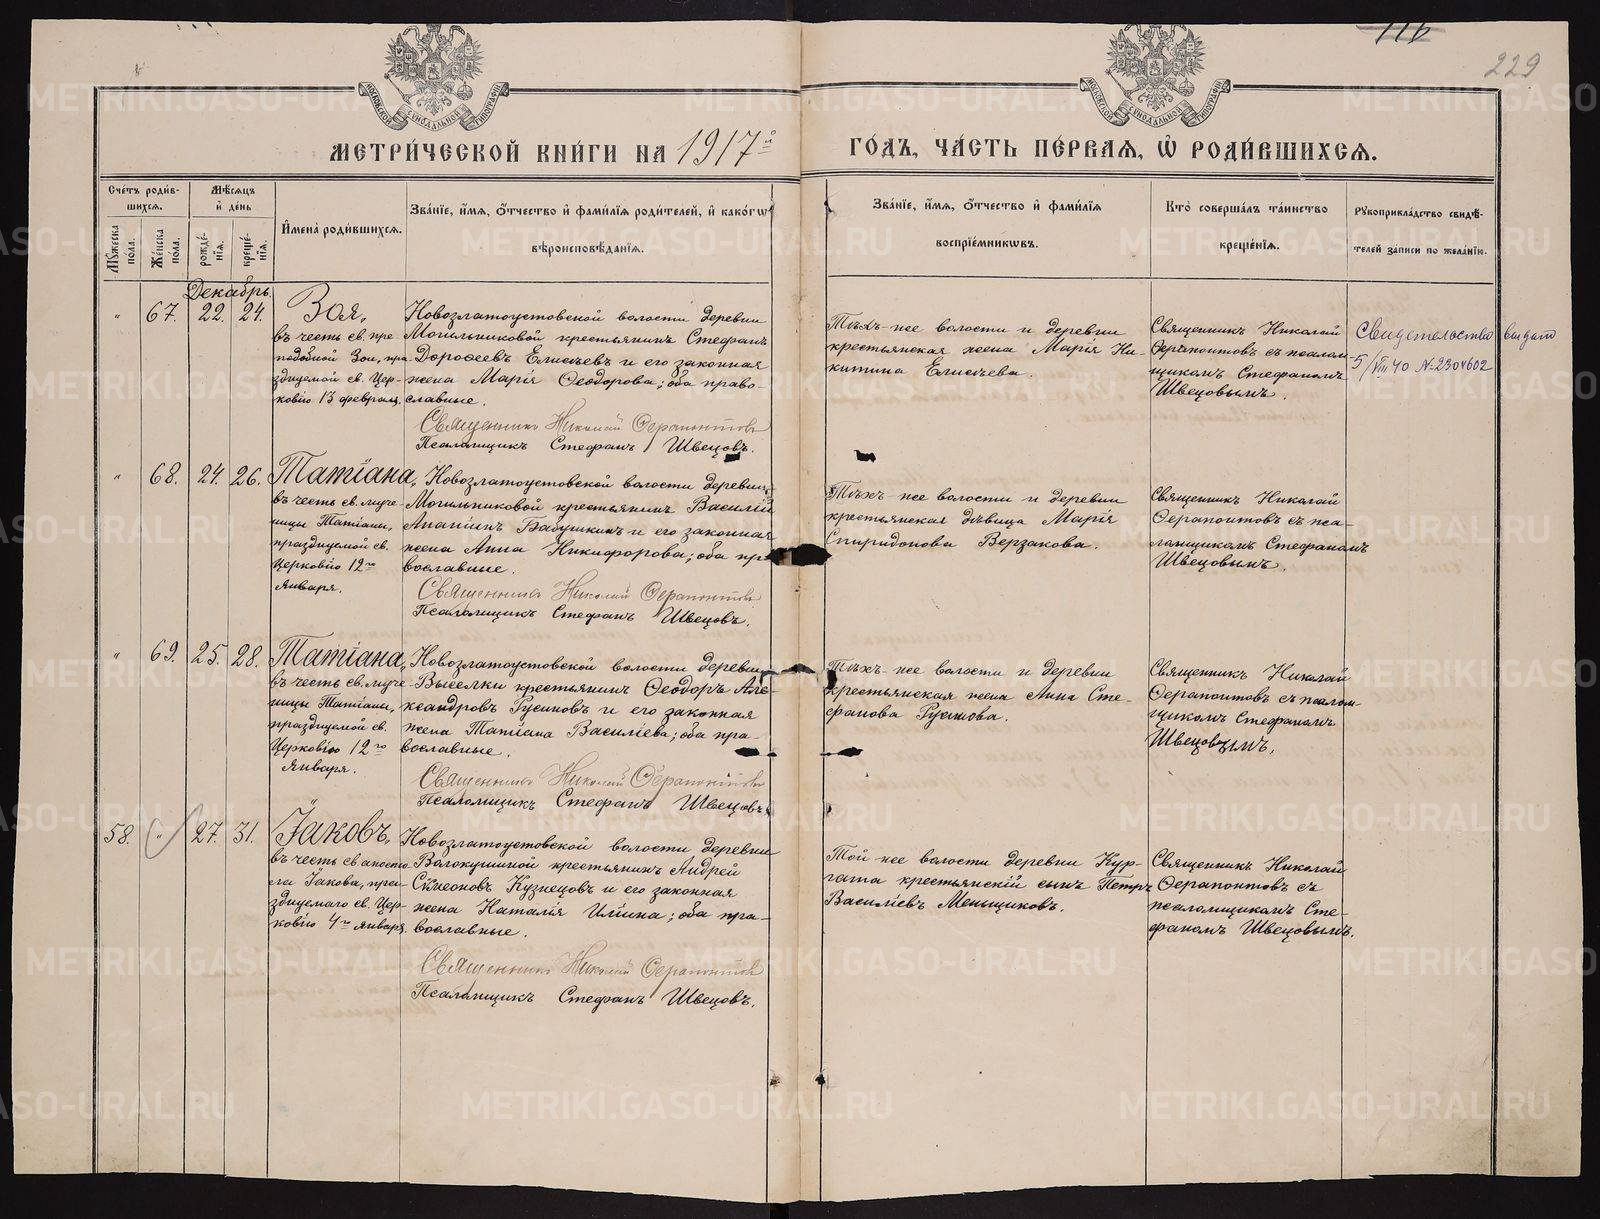 116
229
МОСКОВСКОЙ СѴНОДАЛЬНОЙ ТИПОГРАФІИ
МОСКОВСКОЙ СѴНОДАЛЬНОЙ ТИПОГРАФІИ
МЕТРИ́ЧЕСКОЙ КНИ́ГИ НА 1917й
ГО́ДЪ, ЧА́СТЬ ПЕ́РВАЯ, Ѡ҆ РОДИ́ВШИХСЯ.
Сче́тъ роди́в-
шихся.
Мꙋжеска пола.
Же́нска пола.
Мѣ́сяцъ
и҆ де́нь
рожде́-
нїя.
креще́-
нїя.
И҆мена̀ роди́вшихся.
Зва́нїе, и҆́мя, ѻ҆́тчество и҆ фами́лїя роди́телей, и҆ како́гѡ
вѣроисповѣ́данїя.
Зва́нїе, и҆́мя, ѻ҆́тчество и҆ фами́лїя
воспрїе́мникѡвъ.
Кто̀ соверша́лъ та́инство
креще́нїя.
Рꙋкоприкла́дство свидѣ́-
телей за́писи по жела́нїю.
Декабрь
" 67. 22. 24.
Зоя,
въ честь св. пре-
подобной Зои, пра-
здуемой св. Цер-
ковію 13 февраля.
Новозлатоустовской волости деревни
Могильниковой крестьянинъ Стефанъ
Дороѳеевъ Елисѣевъ и его законная
жена Марія Ѳеодорова; оба право-
славные.
Священникъ Николай Ѳерапонтовъ
Псаломщикъ Стефанъ Швецовъ.
Тѣхъ-же волости и деревни
крестьянская жена Марія Ни-
китина Елисѣева.
Священникъ Николай
Ѳерапонтовъ съ псалом-
щикомъ Стефаномъ
Швецовымъ.
Свидетельство выдано
5/VIII 40 № 2304602
" 68. 24. 26.
Татіана,
въ честь св. муче-
ницы Татіаны,
празднуемой св.
Церковію 12го
Января.
Новозлатоустовской волости деревни
Могильниковой крестьянинъ Василій
Ананіинъ Бабушкинъ и его законная
жена Анна Никифорова; оба пра-
вославные.
Священникъ Николай Ѳерапонтовъ
Псаломщикъ Стефанъ Швецовъ.
Тѣхъ-же волости и деревни
крестьянская дѣвица Марія
Спиридонова Верзакова.
Священникъ Николай
Ѳерапонтовъ съ пса-
ломщикомъ Стефаномъ
Швецовымъ.
" 69. 25. 28.
Татіана,
въ честь св. муче-
ницы Татіаны,
празднуемой св.
Церковію 12го
Января.
Новозлатоустовской волости деревни
Выселки крестьянинъ Ѳеодоръ Але-
ксандровъ Гусиновъ и его законная
жена Татіана Василіева; оба пра-
вославные.
Священникъ Николай Ѳерапонтовъ
Псаломщикъ Стефанъ Швецовъ
Тѣхъ-же волости и деревни
крестьянская жена Анна Сте-
фанова Гусинова.
Священникъ Николай
Ѳерапонтовъ съ псалом-
щикомъ Стефаномъ
Швецовымъ.
58. " 27. 31.
Іаковъ,
въ честь св. апосто-
ла Іакова, пра-
зднуемаго св. Цер-
ковію 4го Января.
Новозлатоустовской волости деревни
Волокушиной крестьянинъ Андрей
Сѵмеоновъ Кузнецовъ и его законная
жена Наталія Иліина; оба пра-
вославные.
Священникъ Николай Ѳерапонтовъ
Псаломщикъ Стефанъ Швецовъ.
Той-же волости деревни Кур-
гата крестьянскій сынъ Петръ
Василіевъ Меньщиковъ.
Священникъ Николай
Ѳерапонтовъ съ
псаломщикомъ Сте-
фаномъ Швецовымъ.
METRIKI.GASO-URAL.RU